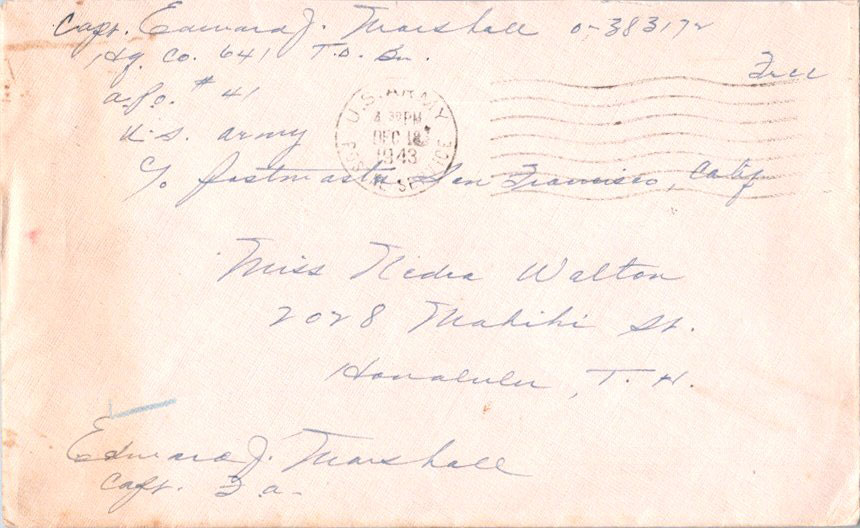 Capt. Edward J. Marshall 0-383172
Hq. Co. 641 T.D. Bn.
Free
a.P.o. # 41
U.S. army
c/o Postmaster San Francisco, Calif
U.S. ARMY
POSTAL SERVICE
PM
DEC 18
1943
Miss Nedra Walton
2028 Makiki St.
Honolulu, T.H.
Edward J. Marshall
Capt. F.a.